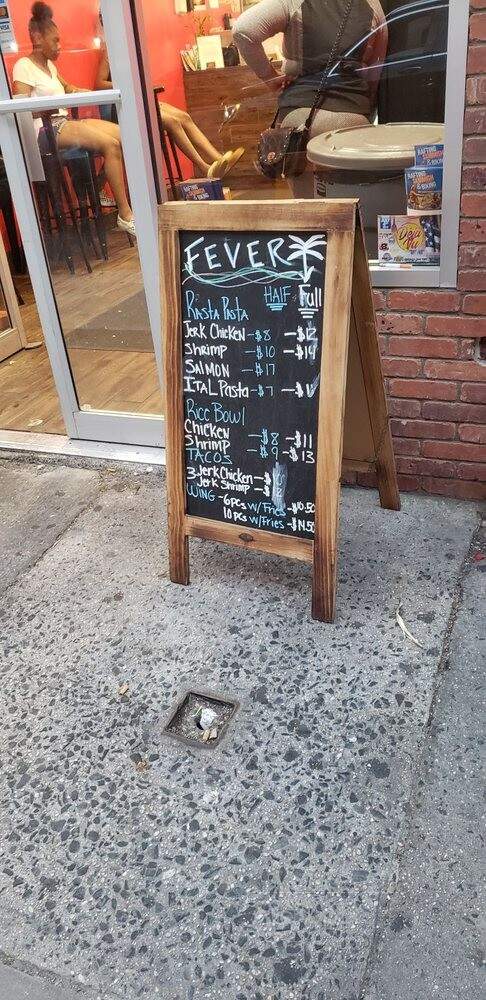 FEVER
HALF Full
Rasta Pasta
Jerk Chicken - $8 - $12
Shrimp - $10 - $14
SALMON - $17
ITAL Pasta - $7
Rice Bowl
Chicken - $8 - $11
Shrimp - $9 - $13
TACOS
3 Jerk Chicken - $
Jerk Shrimp - $
WING - 6pcs w/Fries - $10.50
10 pcs w/Fries - $14.50
RAFTING
& BIKING
RAFTING
Deja
Vu
VISA